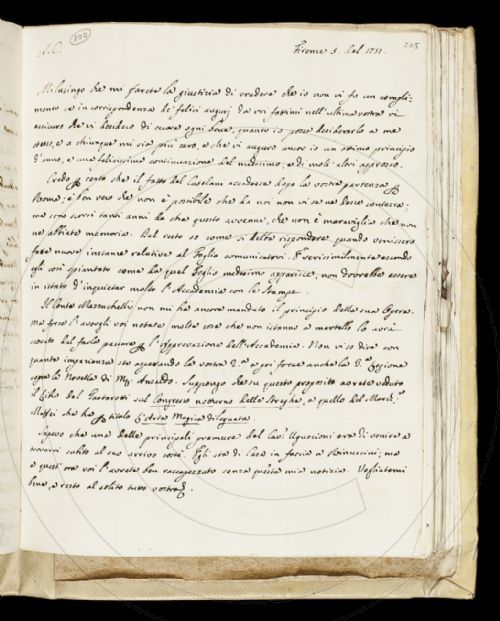 A. C. 100 Firenze 5. Del 1751. 205
Mi lusingo che mi farete la giustizia di credere che io non vi fo un compli-
mento se in corrispondenza de' felici augurj da voi fattimi nell'ultima vostra vi
assicuro che vi desidero di cuore ogni bene, quanto io posso desiderarlo a me
stesso, e a chiunque mi sia più caro, e che vi auguro ancor io un ottimo principio
d'anno, e una felicissima continuazione del medesimo, e di molti altri appresso.
Credo certo che il fatto del Casolani accadesse dopo la vostra partenza
Roma; è ben vero che non è possibile che da noi non vi se ne desse contezza;
ma sono scorsi tanti anni da che questo avvenne, che non è maraviglia che non
ne abbiate memoria. Del resto so come si debba rispondere quando venissero
fatte nuove instanze relative al Foglio comunicatovi. Verisimilmente essendo
egli così spiantato come da quel Foglio medesimo apparisce, non dovrebbe essere
in istato d'inquietar molto l'Accademia con le stampe.
Il Conte Mazzuchelli non mi ha ancora mandato il principio della sua Opera.
Ma forse l'avergli voi notate molte cose che non istanno a martello lo avrà
fatto passare l'approvazione dell'Accademia. Non vi so dire con
quanta impazienza sto aspettando la vostra e poi forse anche la Lezione
sopra la Novella di Ansaldo. Suppongo che su questo proposito avrete veduto
il Libro del Tartarotti sul Congresso notturno delle Streghe, e quello del March.
Maffei che ha titolo L'Arte Magica dileguata.
Sapevo che una delle principali premure del Cav. Uguccioni era di venire a
trovarvi subito al suo arrivo costà. Egli sta di Casa in faccia a Rinuccini; ma
a quest'ora voi l'avrete ben raccapezzato senza questa mia notizia. Vogliatemi
bene, e resto al solito tutto vostro.